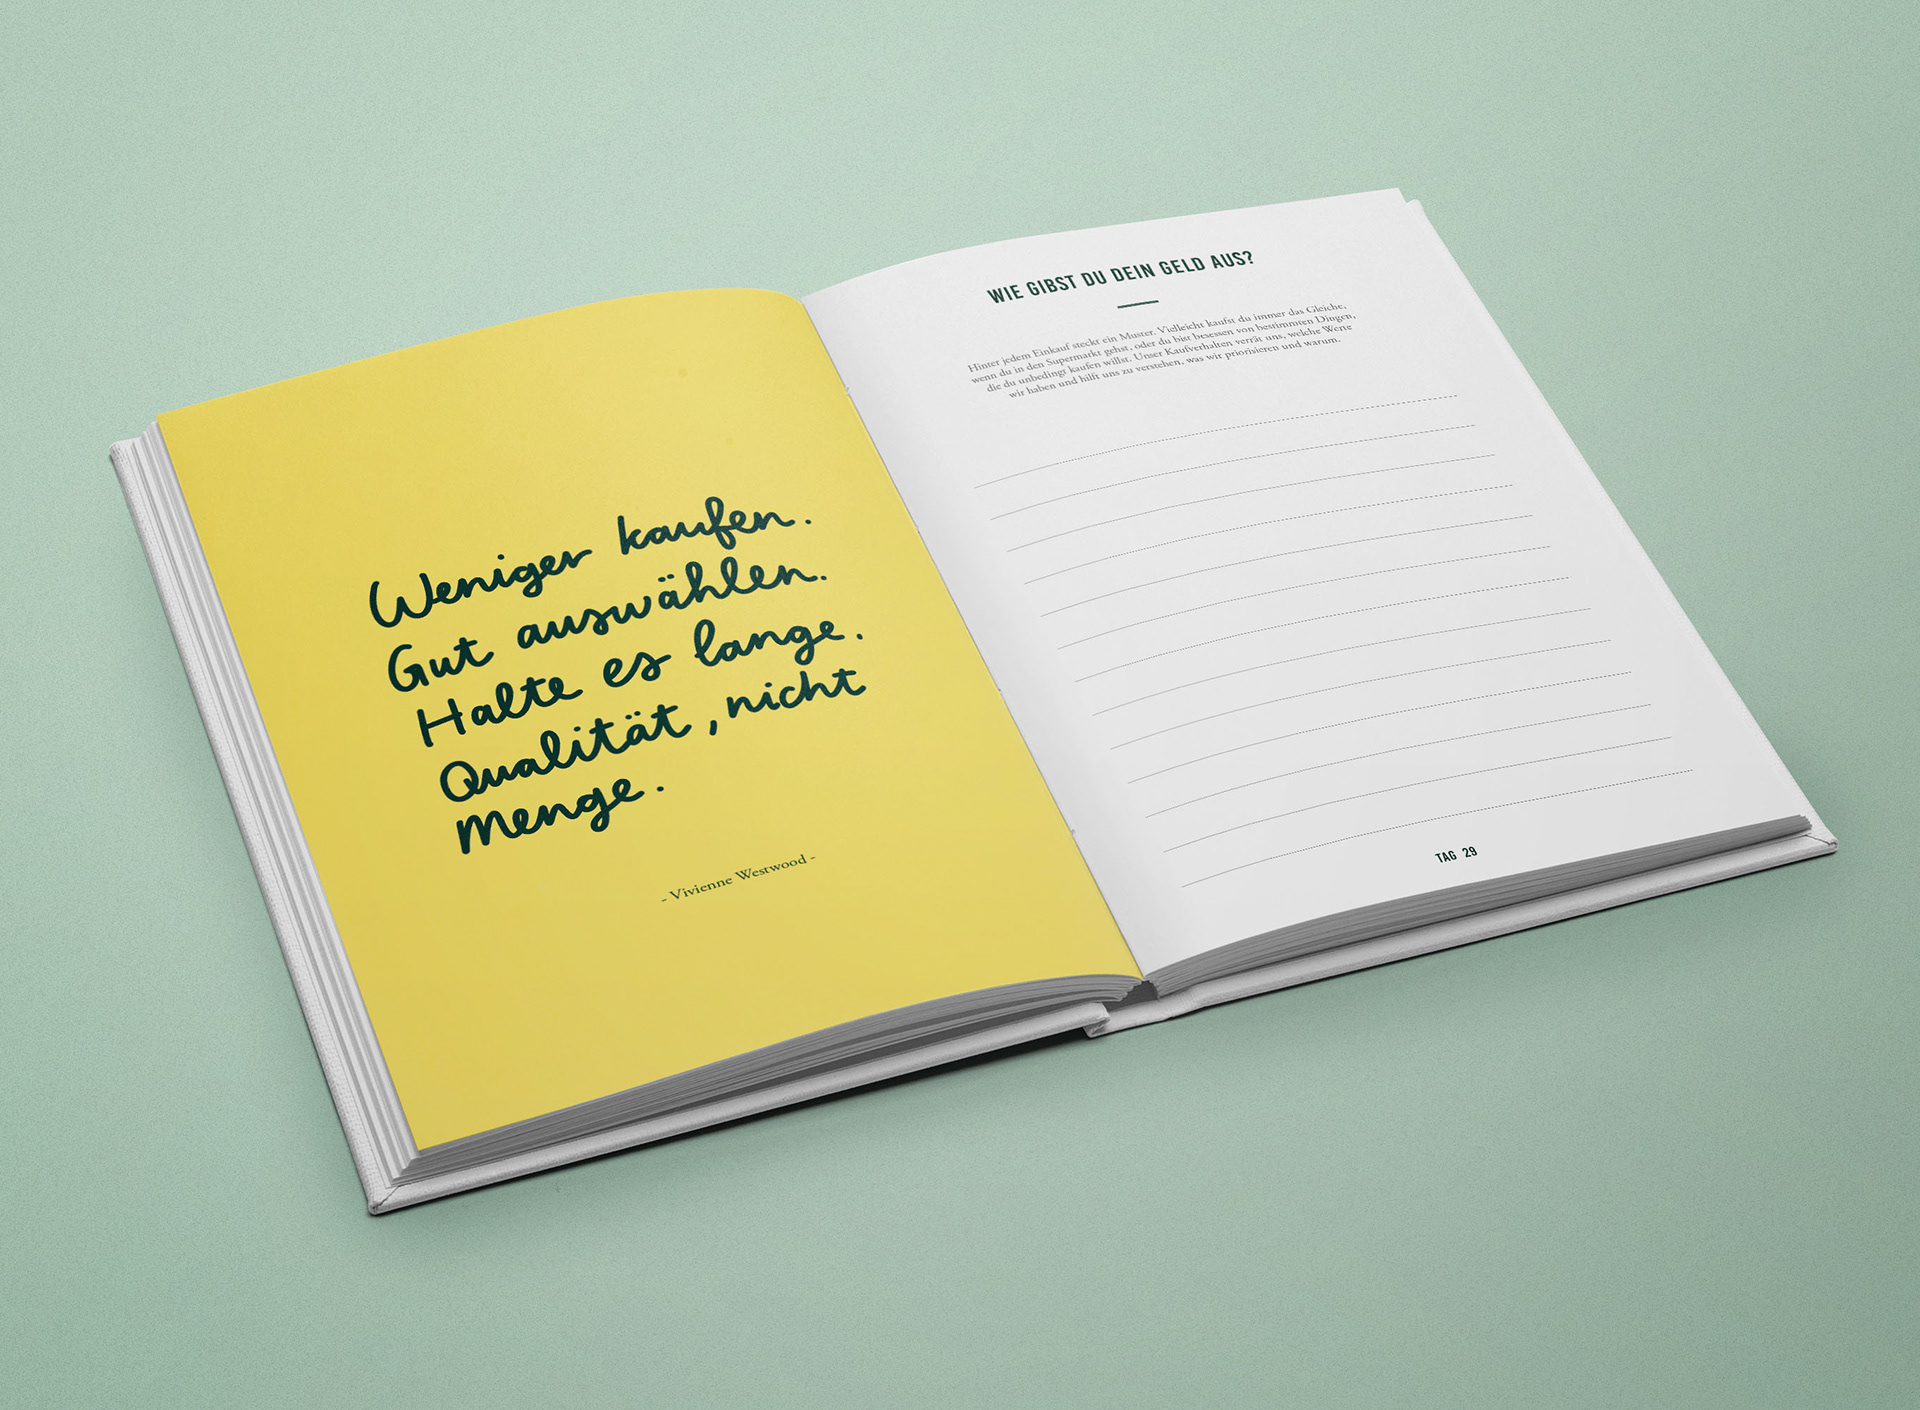 Weniger kaufen.
Gut auswählen.
Halte es lange.
Qualität, nicht
Menge.
- Vivienne Westwood -
WIE GIBST DU DEIN GELD AUS?
Hinter jedem Einkauf steckt ein Muster. Vielleicht kaufst du immer das Gleiche,
wenn du in den Supermarkt gehst, oder du bist besessen von bestimmten Dingen,
die du unbedingt kaufen willst. Unser Kaufverhalten verrät uns, welche Werte
wir haben und hilft uns zu verstehen, was wir priorisieren und warum.
TAG 29